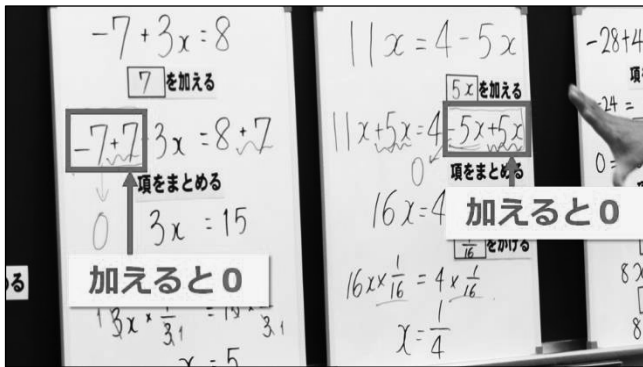 -7+3x=8
7 を加える
-7+7 3x=8+7
項をまとめる
0 3x =15
加えると0
x=5
11x=4-5x
5x を加える
11x+5x=4-5x+5x
0
項をまとめる
16x=4
加えると0
1/16 をかける
16x×1/16=4×1/16
x=1/4
-28+4
項
-24=
0=
8x
8